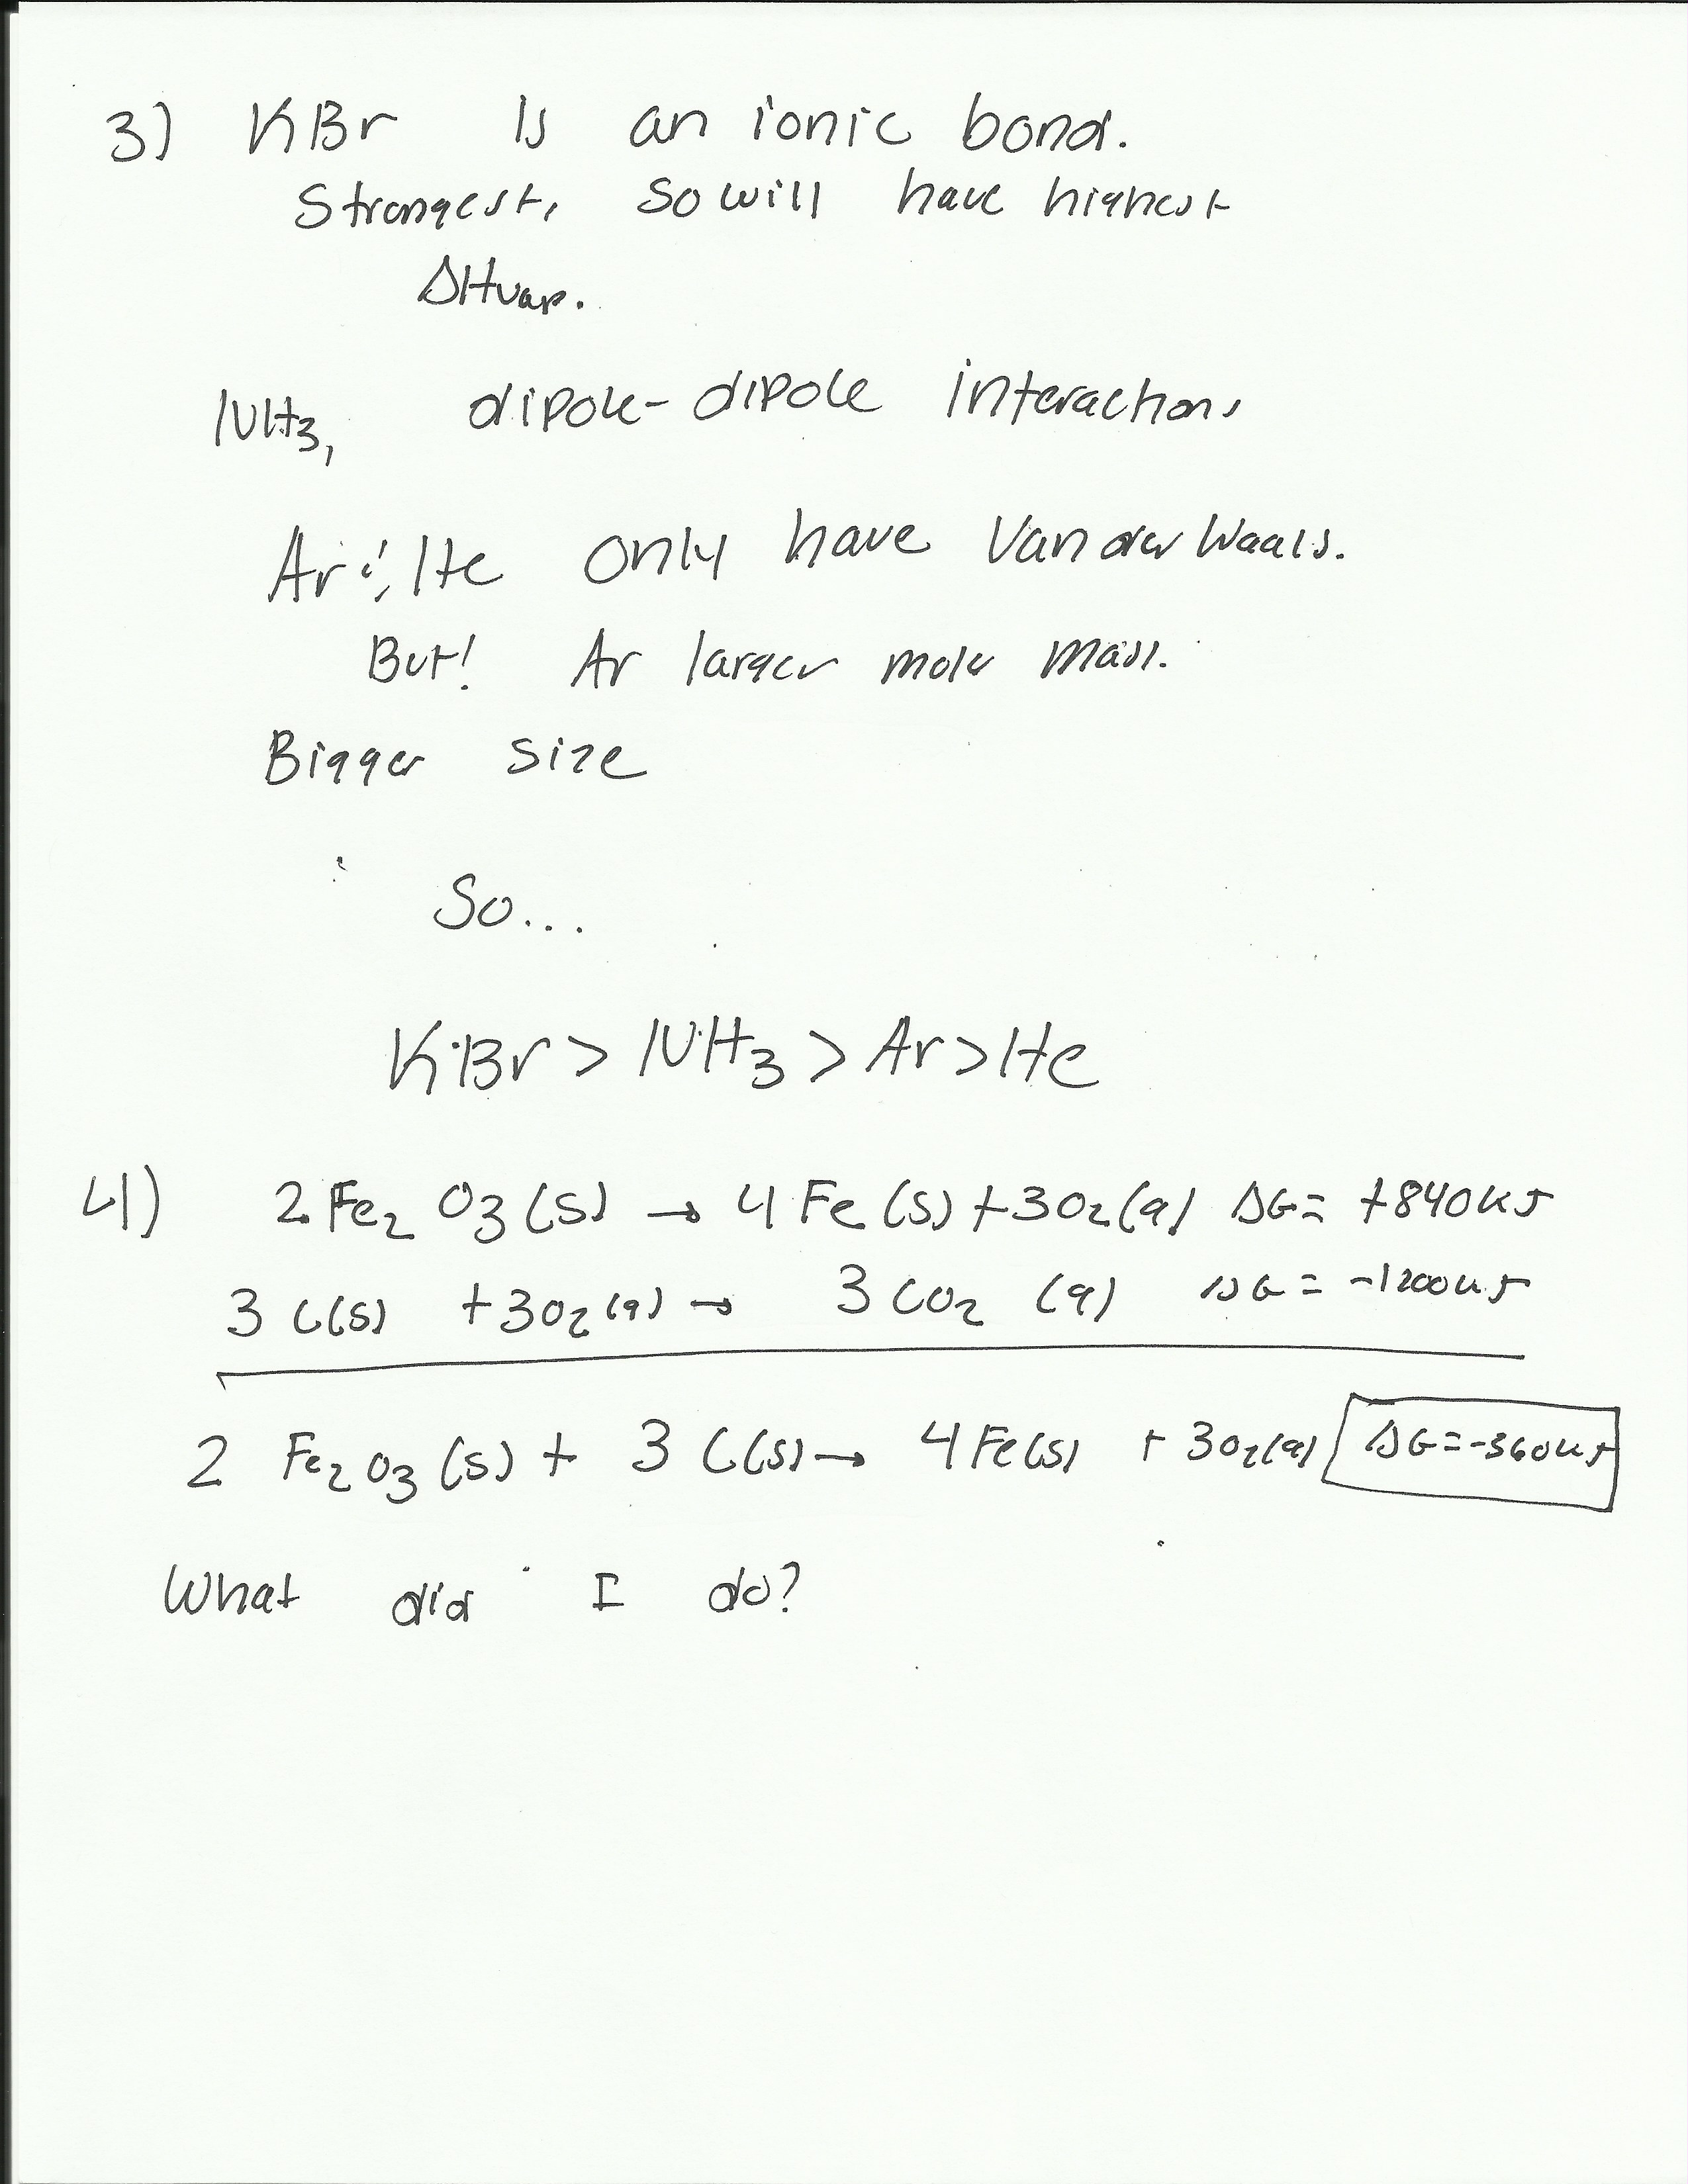 3) KBr Is an ionic bond.
Strongest, so will have highest
ΔHvap.
NH3, dipole-dipole interactions
Ar & He only have Van der Waals.
But! Ar larger molar mass.
Bigger size
So...
KBr > NH3 > Ar > He
4) 2 Fe2 O3 (s) → 4 Fe (s) + 3O2 (g) ΔG = +840kJ
3 C(s) + 3O2 (g) → 3 CO2 (g) ΔG = -1200kJ
2 Fe2O3 (s) + 3 C(s) → 4Fe(s) + 3O2(g) ΔG = -360kJ
What did I do?